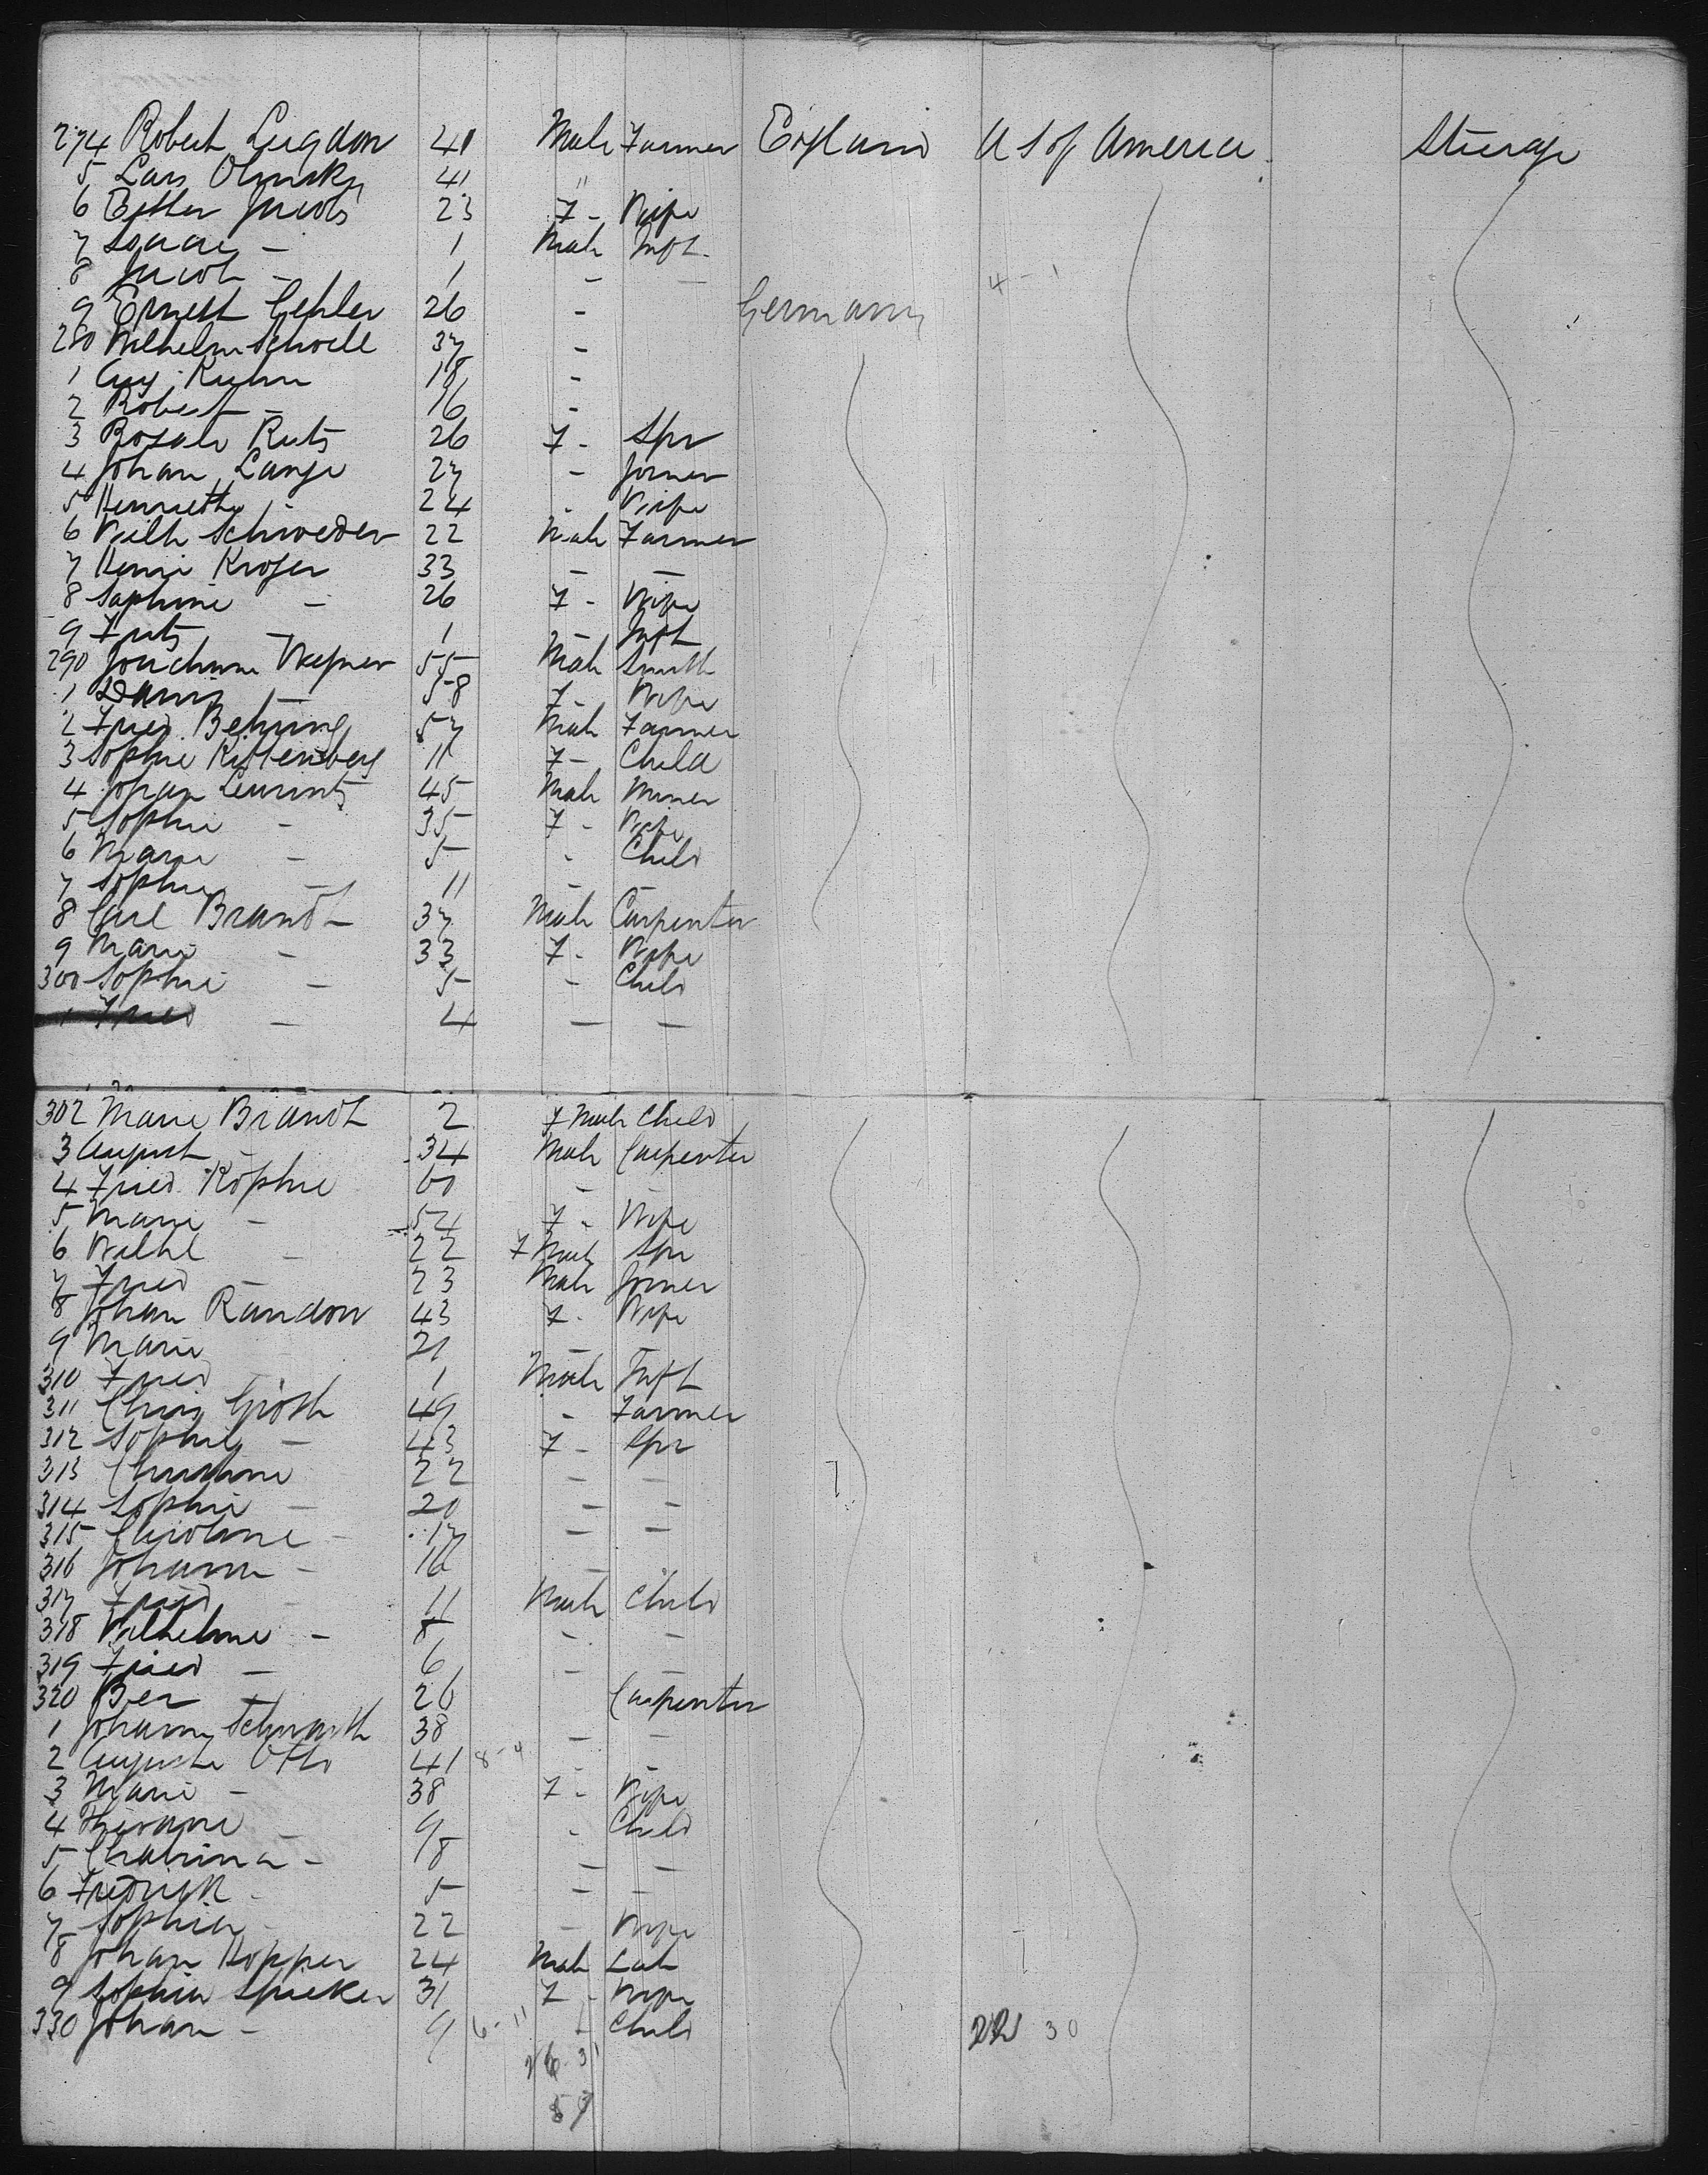 274 Robert Lugdon 41 Male Farmer England U S of America Steerage
5 Lars 41 "
6 Esther Jacobs 23 F - Wife
7 Isaac - 1 Male Inft
8 Jacob - 1 - -
9 Ernest Gehler 26 - Germany
280 Wilhelm Schoell 37 -
1 Aug. Kuhn 18 -
2 Robert - 16 -
3 Rosali Ruts 26 F - Spr
4 Johan Lange 27 - Joiner
5 Henriette 24 - Wife
6 Wilh Schroeder 22 Male Farmer
7 Henri Kroger 33 - -
8 Saphine - 26 F - Wife
9 Fritz - 1 - Inft
290 Joachim Wegner 55 Male Smith
1 - 58 F - Wife
2 Fried. Behring 57 Male Farmer
3 Sophie 11 F - Child
4 Johan 45 Male Miner
5 Sophie - 35 F - Wife
6 Marie - 5 - Child
7 Sophie - 11 - -
8 Carl Brandt 37 Male Carpenter
9 Marie - 33 F - Wife
300 Sophie - 5 - Child
1 Fried - 4 - -
302 Marie Brandt 2 F Male Child
3 August - 34 Male Carpenter
4 Fried. Kophne 60 - -
5 Marie - 54 F - Wife
6 Wilhl - 22 F Male Spr
7 Fried - 23 Male Joiner
8 Johan Randow 43 F - Wife
9 Marie 21 - -
310 Fried 1 Male Inft
311 Chris Groth 49 - Farmer
312 Sophie - 43 F - Spr
313 Christine 22 - -
314 Sophie - 20 - -
315 Caroline - 17 - -
316 Johann - 16 - -
317 Fried - 11 Male Child
318 Wilhelmine - 8 - -
319 Fried - 6 - -
320 Ber - 26 Carpenter
1 Johann 38 - -
2 Auguste Otto 41 8-4 - -
3 Marie - 38 F - Wife
4 - 9 - Child
5 - 8 - -
6 Fredrick - 5 - -
7 Sophia - 22 - Wife
8 Johan Hopper 24 Male Lab
9 Sophia Spieker 31 F - Wife
330 Johan - 9 6-11 Child 30
26-31
57